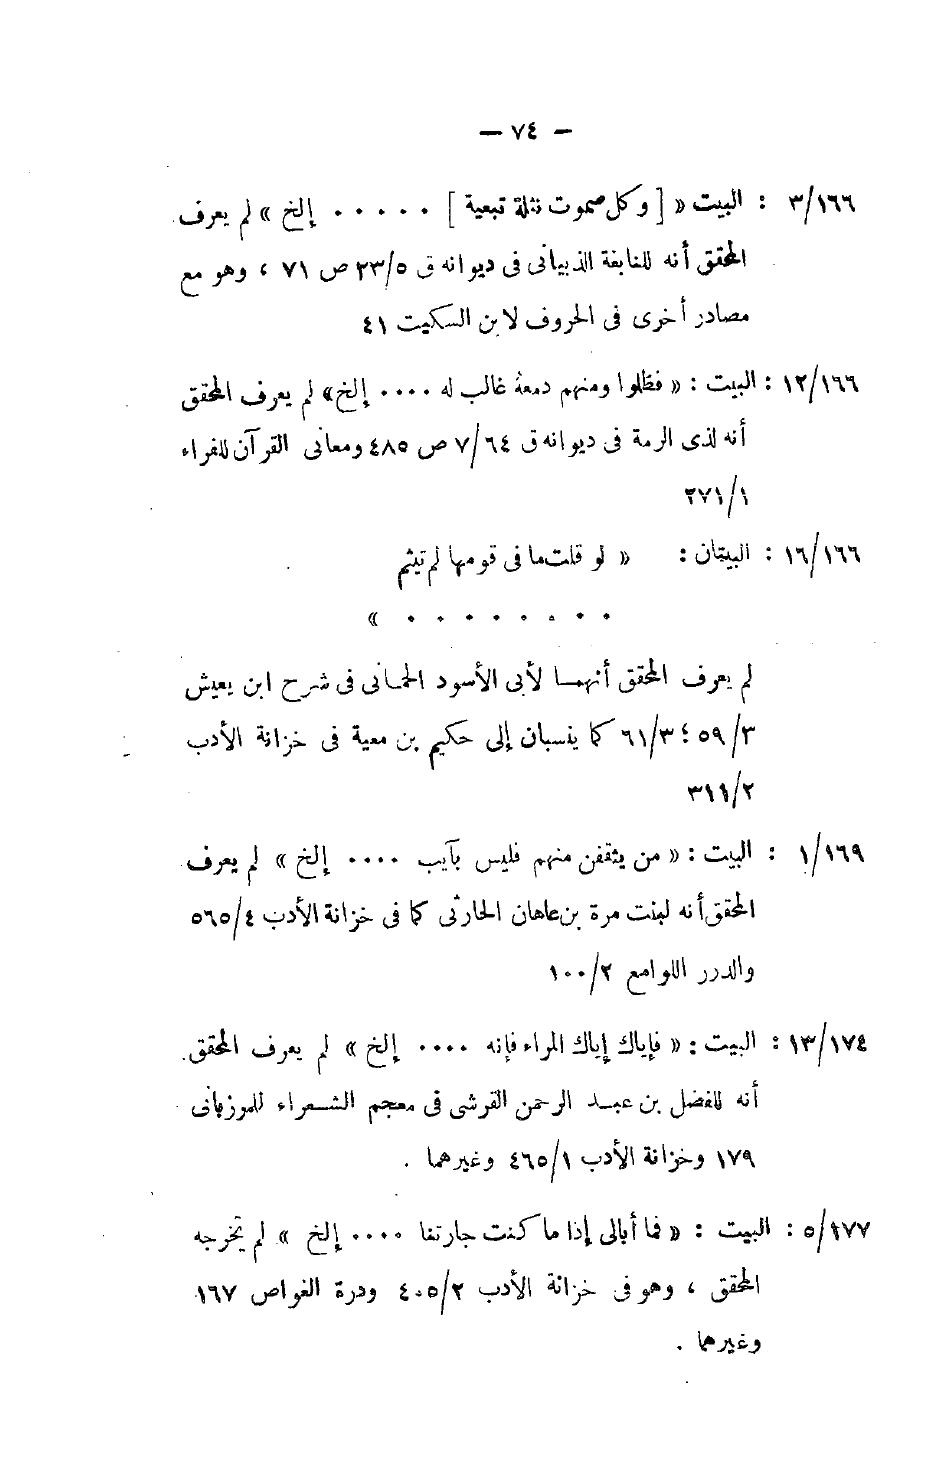 — ٧٤ —
٣/١٦٦ : البيت « [ وكل صموت نثلة تبعية ] ٠٠٠٠٠ إلخ » لم يعرف
المحقق أنه للنابغة الذبيانى فى ديوانه ق ٢٣/٥ ص ٧١ ، وهو مع
مصادر أخرى فى الحروف لابن السكيت ٤١
١٢/١٦٦ : البيت : « فظلوا ومنهم دمعة غالب له ٠٠٠٠ إلخ» لم يعرف المحقق
أنه لذى الرمة فى ديوانه ق ٧/٦٤ ص ٤٨٥ ومعانى القرآن للفراء
٢٧١/١
١٦/١٦٦ : البيتان : « لو قلت ما فى قومها لم تيثم
٠٠٠٠٠٠٠٠ »
لم يعرف المحقق أنهما لأبى الأسود الحمانى فى شرح ابن يعيش
٥٩/٣ ؛ ٦١/٣ كما ينسبان إلى حكيم بن معية فى خزانة الأدب
٣١١/٢
١/١٦٩ : البيت : « من يثقفن منهم فليس بآيب ٠٠٠٠ إلخ » لم يعرف
المحقق أنه لبنت مرة بن عاهان الحارثى كما فى خزانة الأدب ٥٦٥/٤
والدرر اللوامع ١٠٠/٢
١٣/١٧٤ : البيت : « فإياك إياك المراء فإنه ٠٠٠٠ إلخ » لم يعرف المحقق
أنه للفضل بن عبد الرحمن القرشى فى معجم الشعراء للموزبانى
١٧٩ وخزانة الأدب ٤٦٥/١ وغيرهما .
٥/١٧٧ : البيت : « فما أبالى إذا ما كنت جارتنا ٠٠٠٠ إلخ » لم يخرجه
المحقق ، وهو فى خزانة الأدب ٤٠٥/٢ ودرة الغواص ١٦٧
وغيرهما .